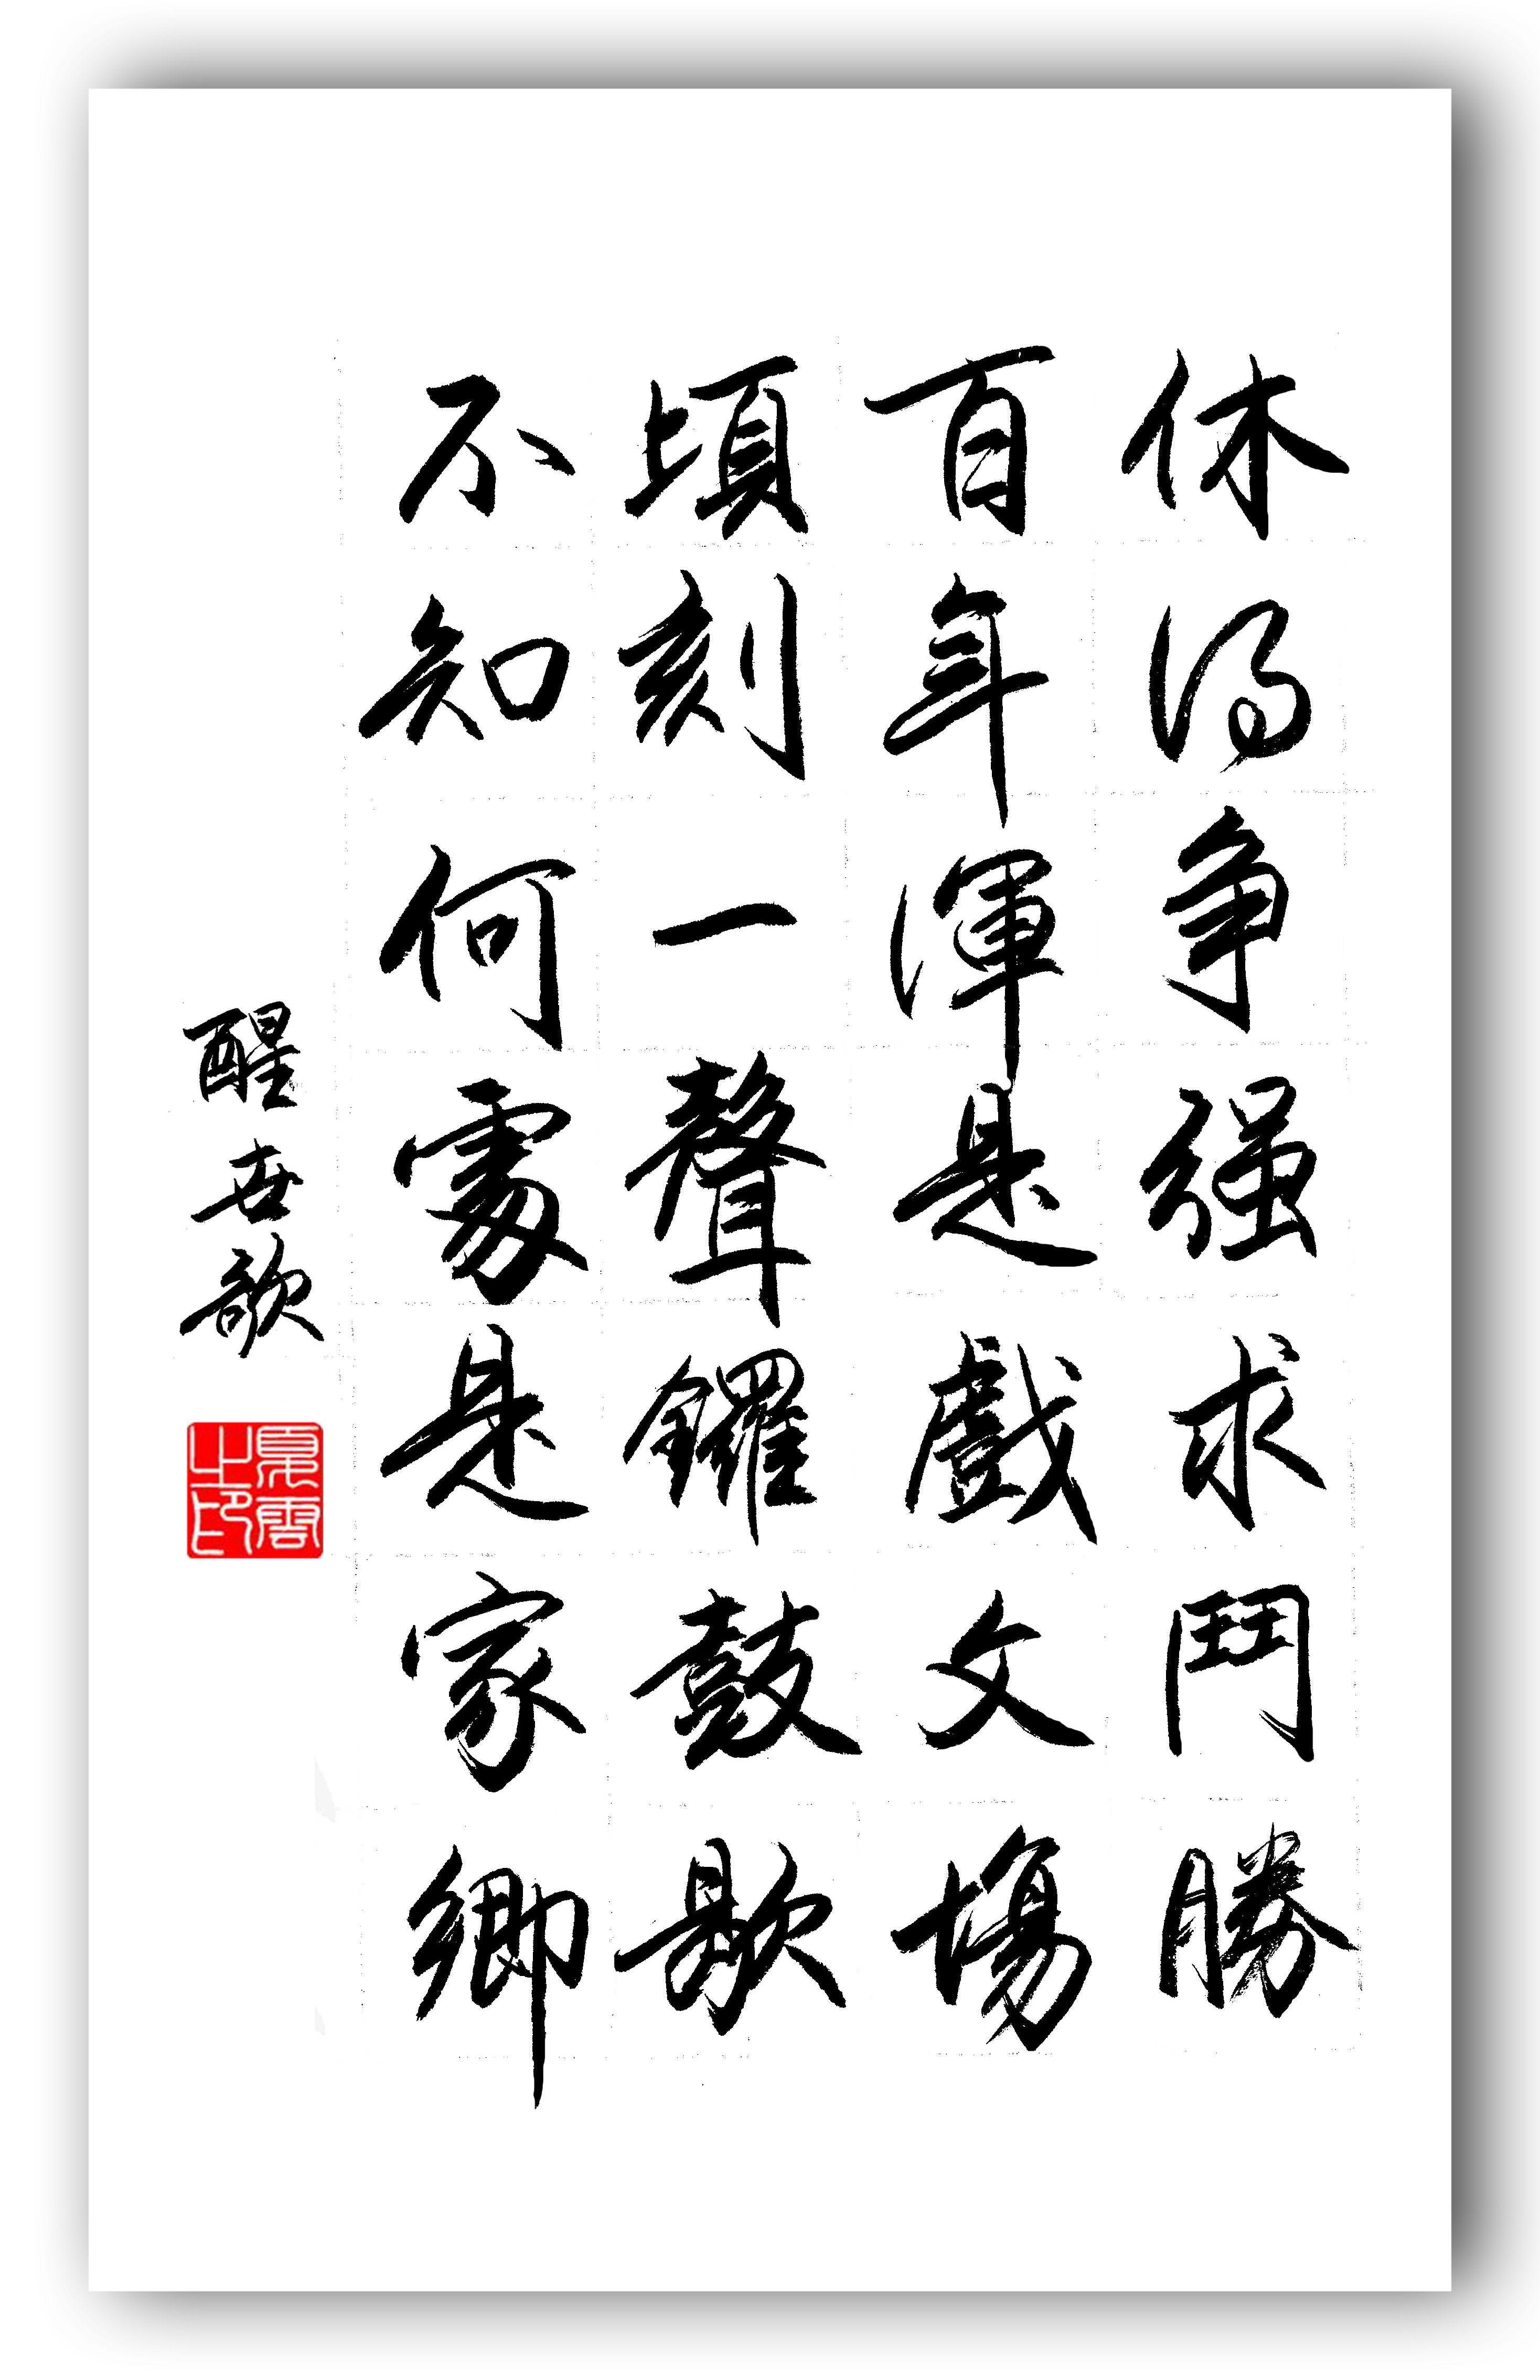 休得争强求鬥勝
百年渾是戲文場
頃刻一聲鑼鼓歇
不知何處是家鄉
醒世歌
夏雲之印